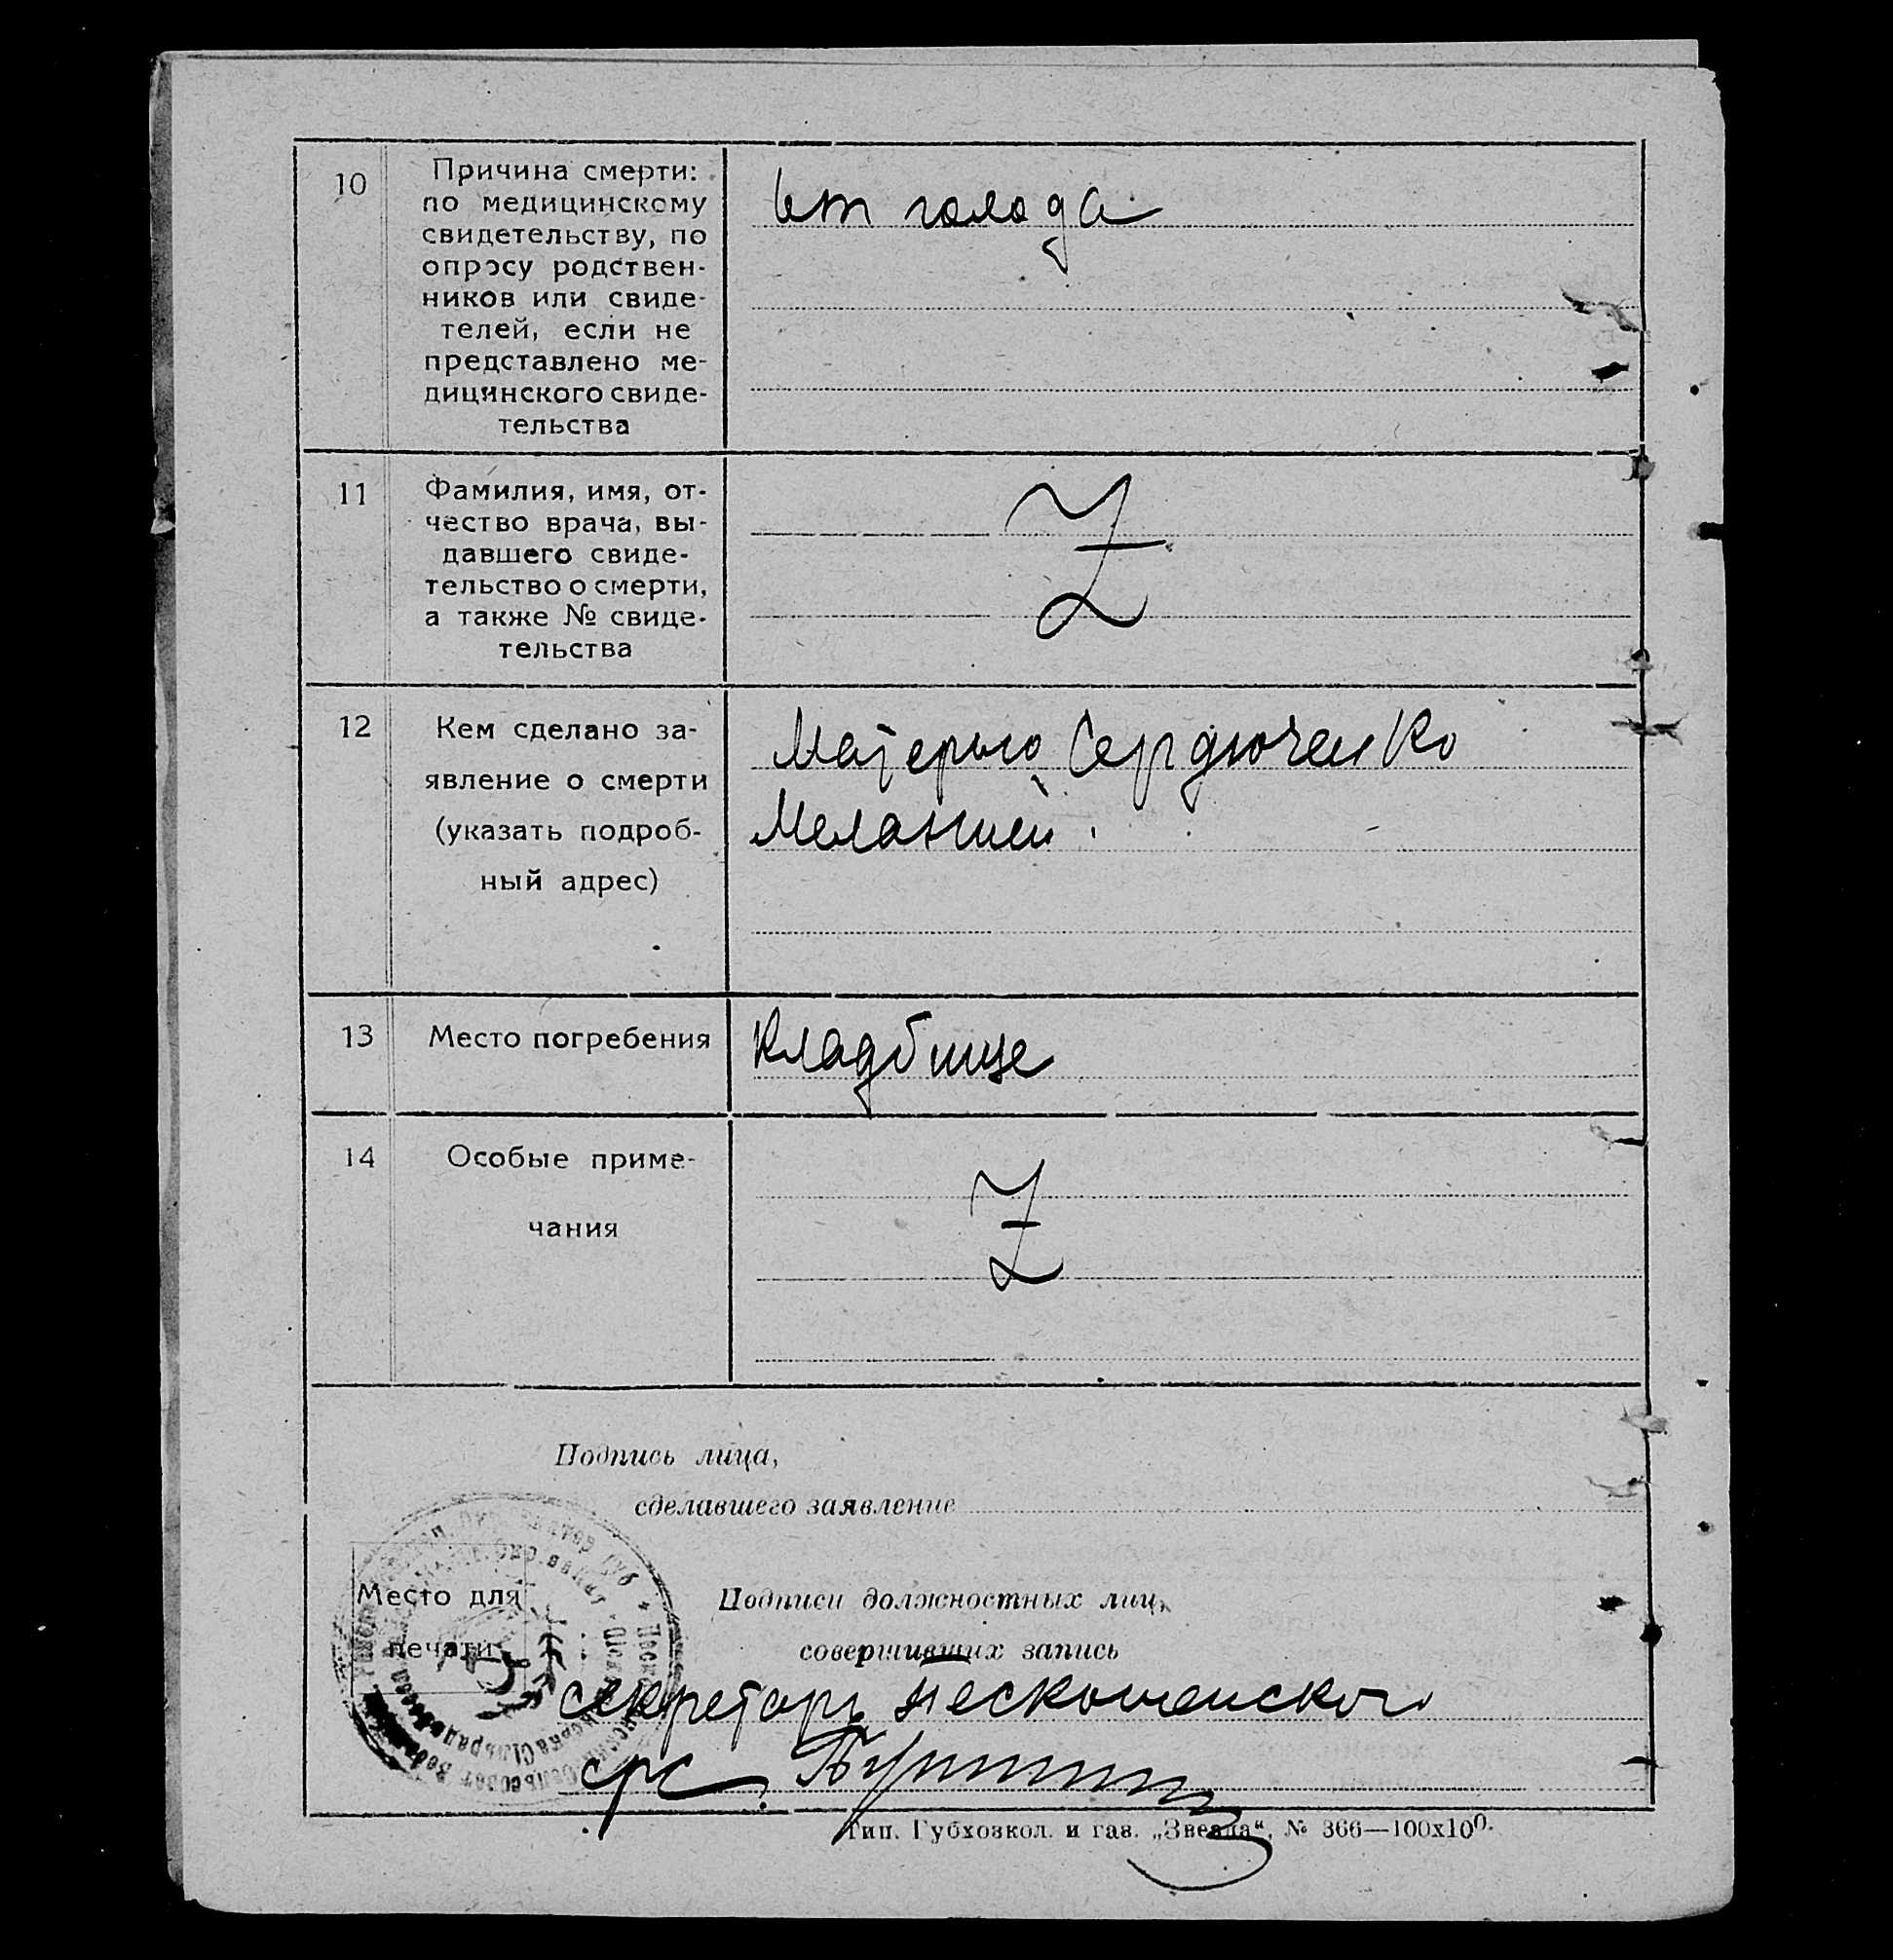 10
Причина смерти:
по медицинскому
свидетельству, по
опросу родствен-
ников или свиде-
телей, если не
представлено ме-
дицинского свиде-
тельства
от голода
11
Фамилия, имя, от-
чество врача, вы-
давшего свиде-
тельство о смерти,
а также № свиде-
тельства
Z
12
Кем сделано за-
явление о смерти
(указать подроб-
ный адрес)
Матерью Сердюченко
Меланией
13
Место погребения
Кладбище
14
Особые приме-
чания
Z
Подпись лица,
сделавшего заявление
Место для
печати
Подписи должностных лиц,
совершивших запись
секретарь
Тип. Губхозкол. и газ. „Звезда“, № 366—100х100.